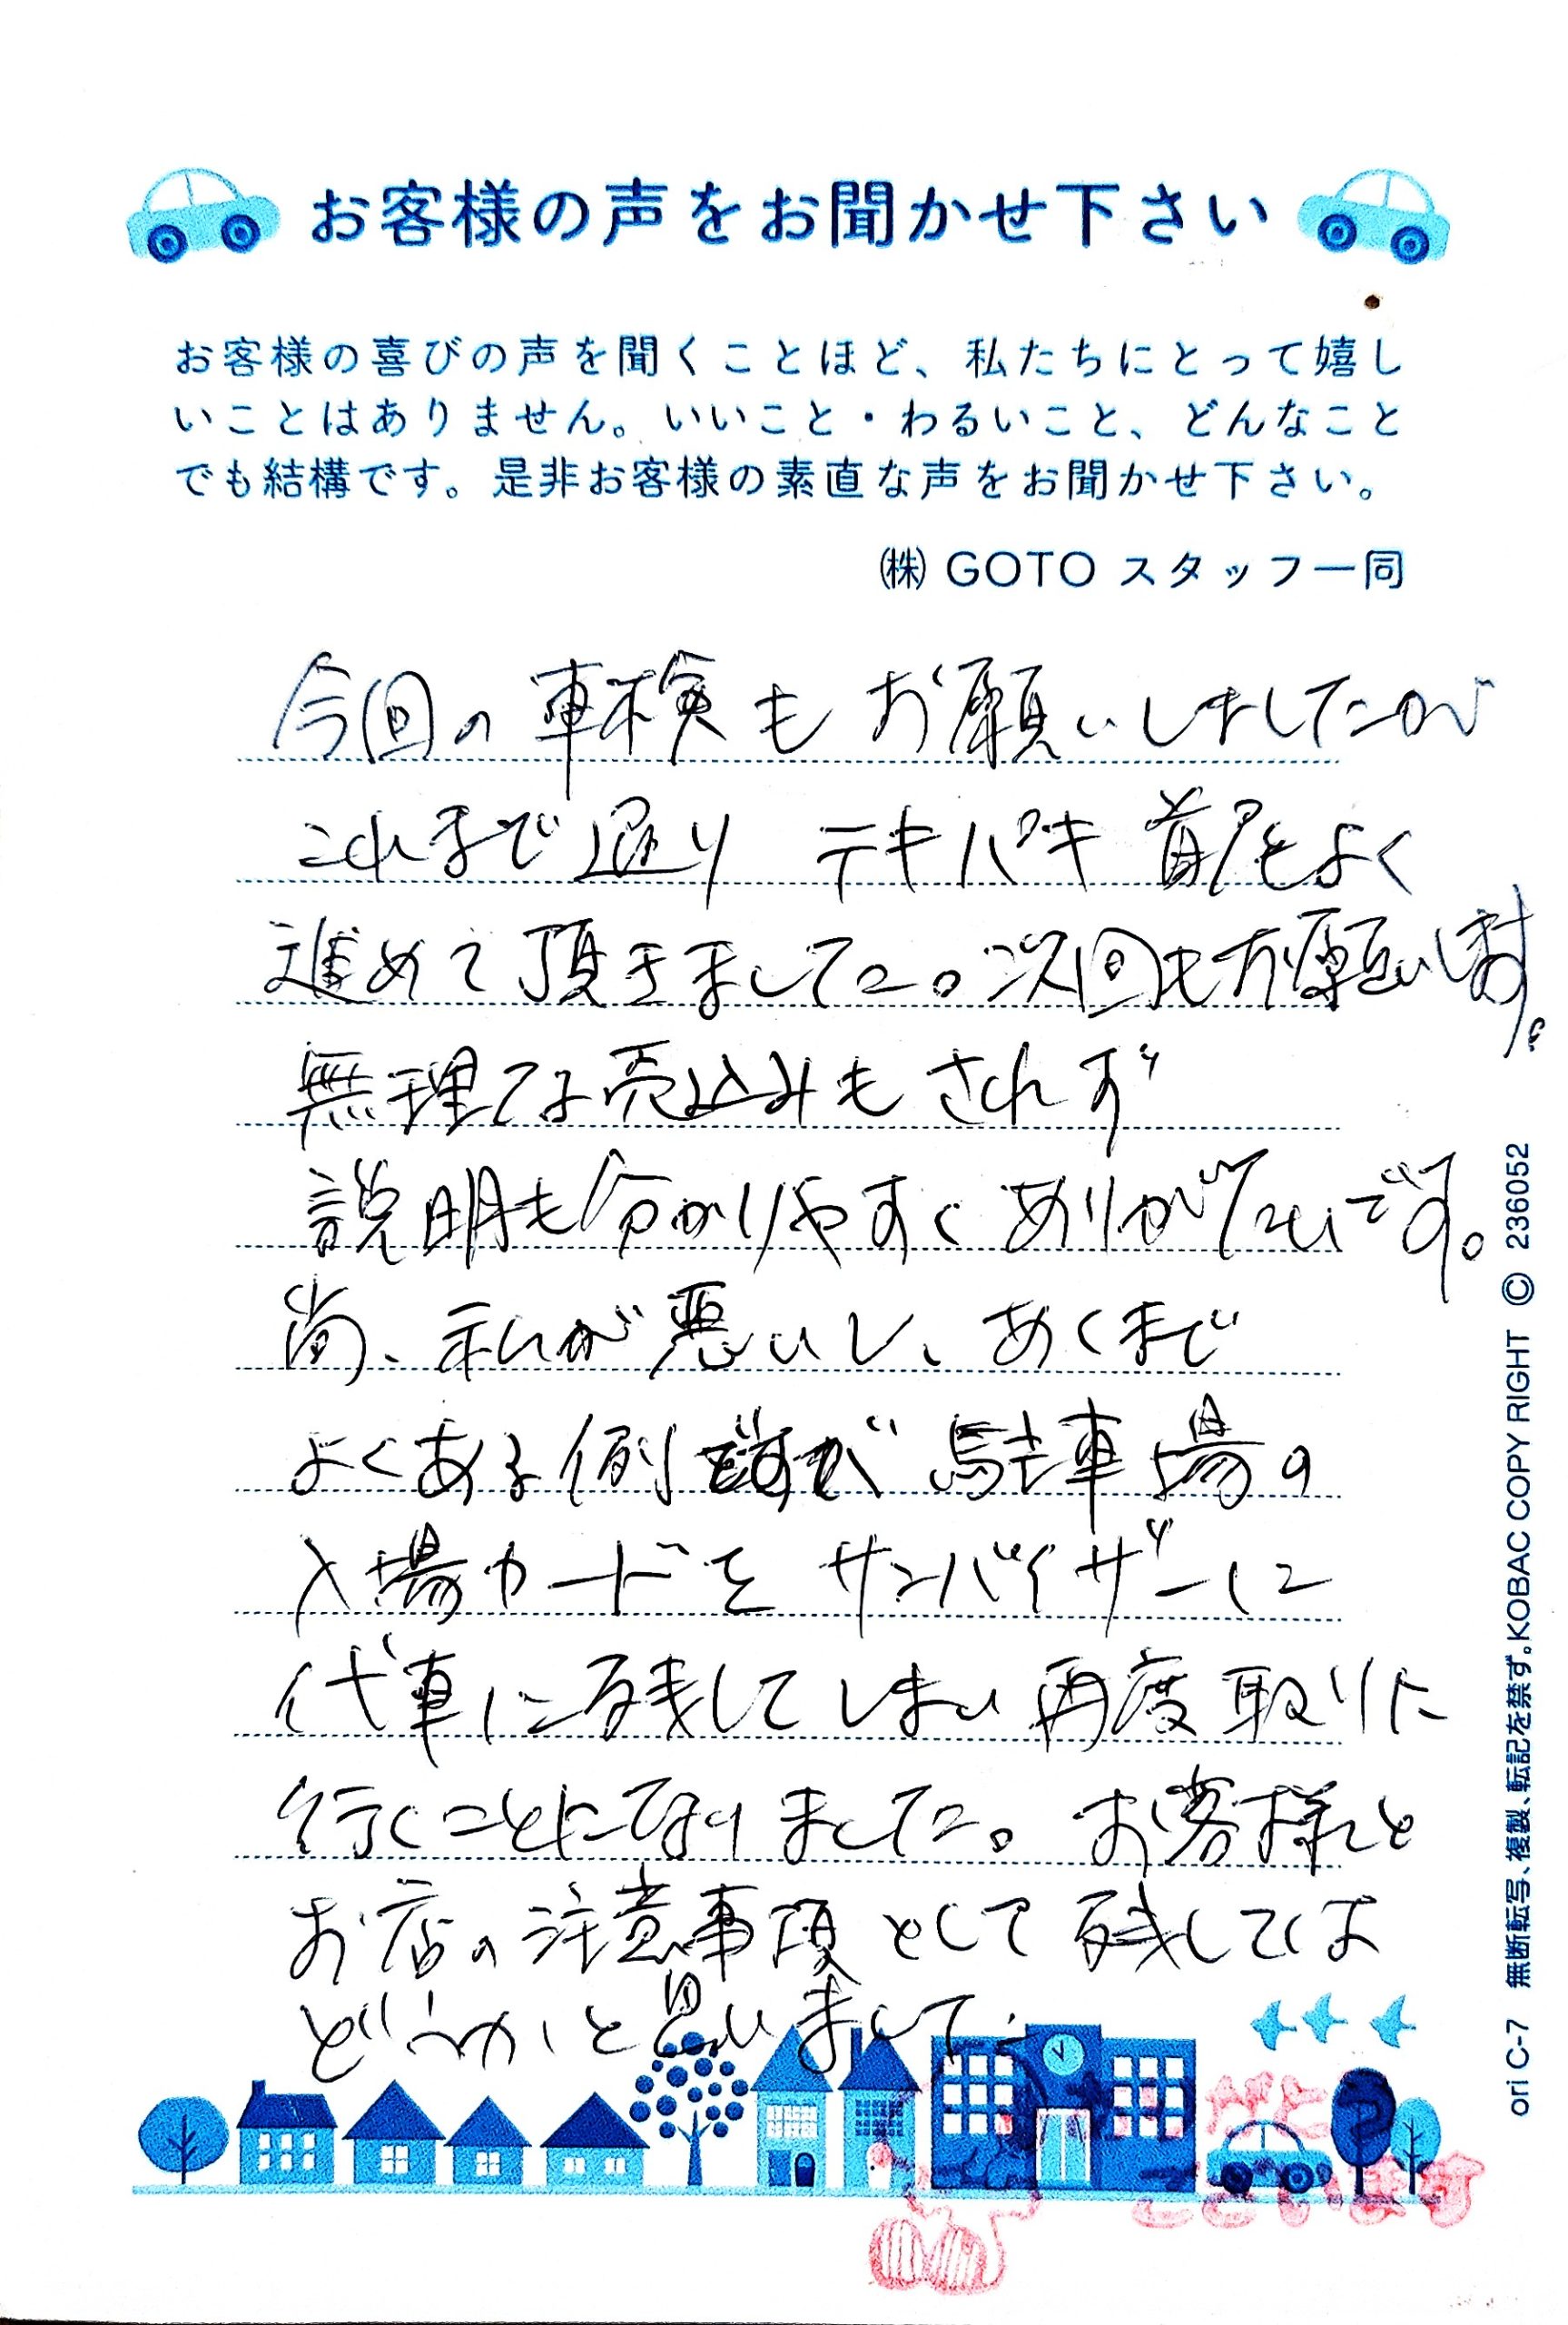 お客様の声をお聞かせ下さい
お客様の喜びの声を聞くことほど、私たちにとって嬉し
いことはありません。いいこと・わるいこと、どんなこと
でも結構です。是非お客様の素直な声をお聞かせ下さい。
㈱ GOTO スタッフ一同
今回の車検もお願いしましたが
これまで通り テキパキ 首尾よく
進めて頂きました。次回もお願いします。
無理な売込みもされず
説明も分かりやすくありがたいです。
尚、私が悪いし、あくまで
よくある例ですが 駐車場の
入場カードを サンバイザーに
代車に残してしまい再度取りに
行くことになりました。お客様と
お店の注意事項として残しては
どうかと思いまして
ori C-7 無断転写、複製、転記を禁ず。KOBAC COPY RIGHT © 236052